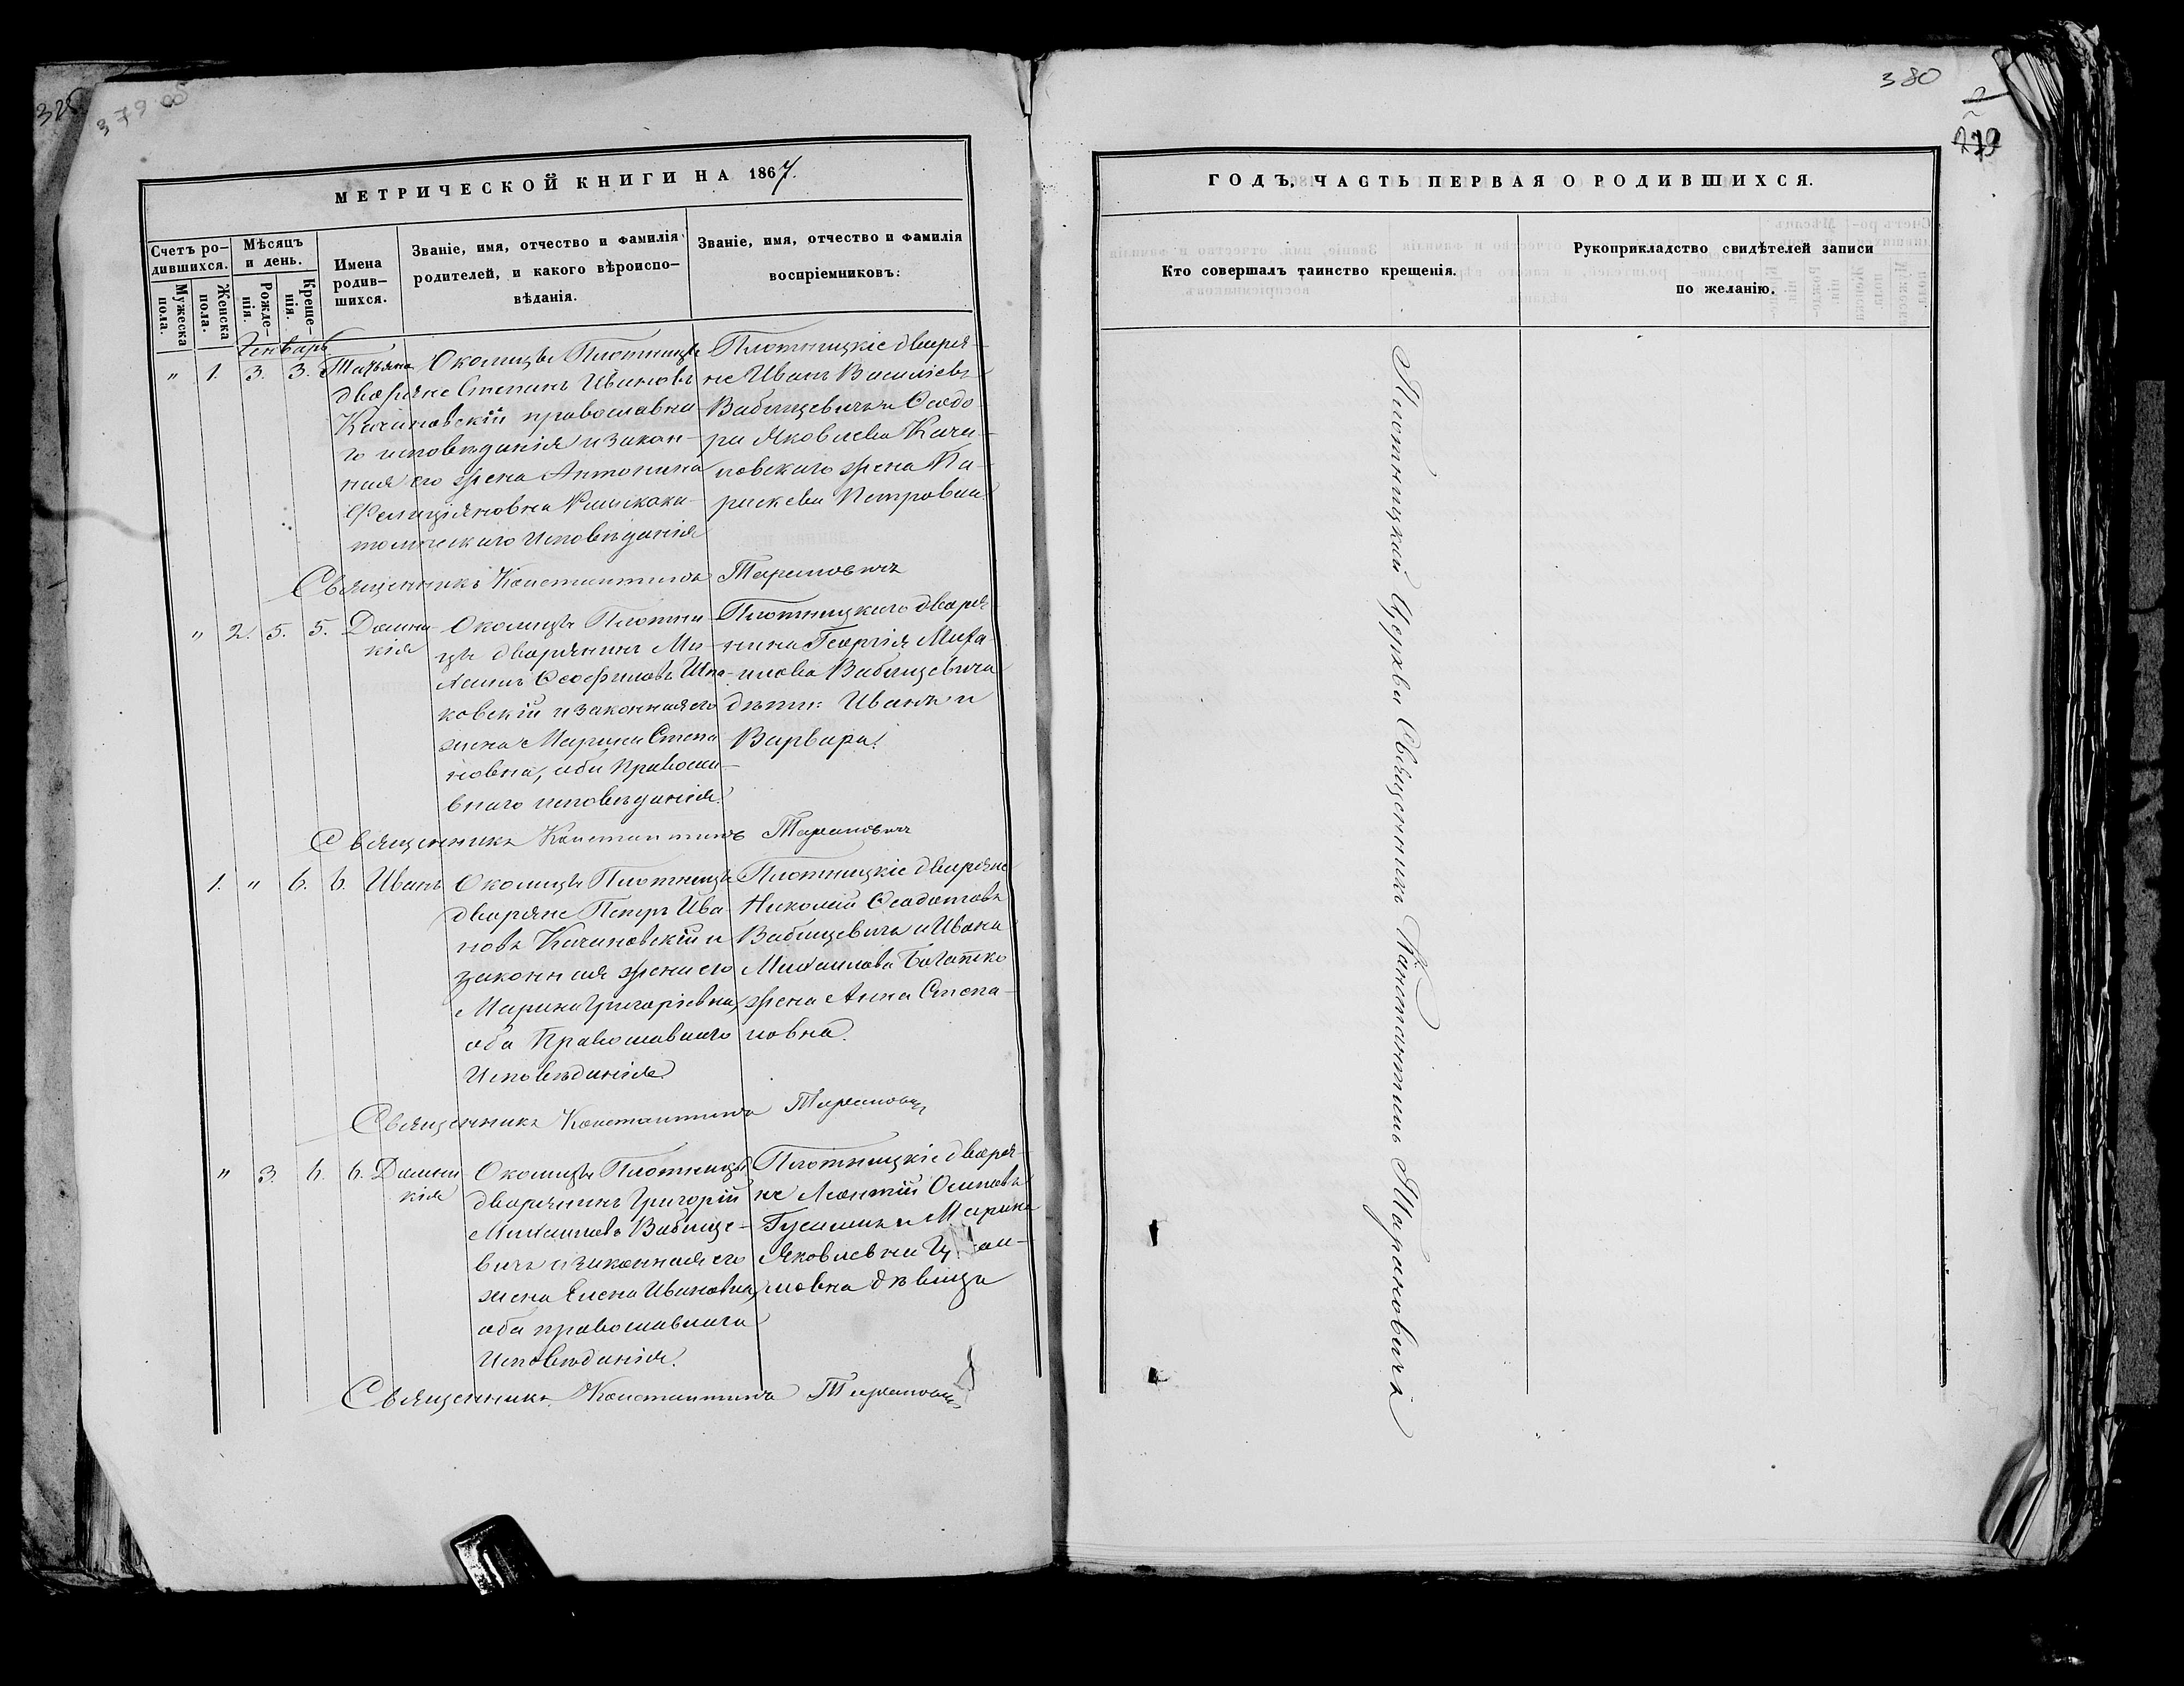 379 об
МЕТРИЧЕСКОЙ КНИГИ НА 1867.
Счетъ ро-
дившихся.
Мѣсяцъ
и день.
Имена
родив-
шихся.
Званіе, имя, отчество и фамилія
родителей, и какого вѣроиспо-
вѣданія.
Званіе, имя, отчество и фамилія
воспріемниковъ:
Мужеска
пола.
Женска
пола.
Рожде-
нія.
Креще-
нія.
Генварь
" 1. 3. 3. Татьяна
Околицы Плотницы
дворяне Степанъ Ивановъ
Качановскій православна-
го исповѣданія и закон-
ная его жена Антонина
Фелиціяновна Римскока-
толическаго Исповѣданія
Плотницкіе дворя-
не Иванъ Васильевъ
Вабищевичъ и Ѳеодо-
ра Яковлева Кача-
новскаго жена Па-
раскева Петровна.
Священникъ Константинъ Тарановичъ
" 2. 5. 5. Домни-
кія
Околицы Плотни-
цы дворянинъ Ми-
хаилъ Ѳеофиловъ Шпа-
ковскій и законная его
жена Марина Степа
новна, оба Правосла-
внаго исповѣданія.
Плотницкаго дворя
нина Георгія Миха-
илова Вабищевича
дѣти: Иванъ и
Варвара.
Священникъ Константинъ Тарановичъ
1. " 6. 6. Иванъ
Околицы Плотницы
дворяне Петръ Ива-
новъ Качановскій и
законная жена его
Марина Григоріевна,
оба Православнаго
Исповѣданія.
Плотницкіе дворяне
Николай Ѳеодотовъ
Вабищевичъ и Ивана
Михаилова Богатко
жена Анна Степа-
новна.
Священникъ Константинъ Тарановичъ
" 3. 6. 6. Домни
кія
Околицы Плотницы
дворянинъ Григорій
Михаиловъ Вабище-
вичъ и законная его
жена Елена Ивановна,
оба православнаго
Исповѣданія.
Плотницкіе дворя-
не Леонтій Осиповъ
Гусаликъ и Марина
Яковлевна
дѣвица
Священникъ Константинъ Тарановичъ
380
ГОДЪ, ЧАСТЬ ПЕРВАЯ О РОДИВШИХСЯ.
Кто совершалъ таинство крещенія.
Рукоприкладство свидѣтелей записи
по желанію.
Плотницкой Церкви Священникъ Константинъ Тарановичъ